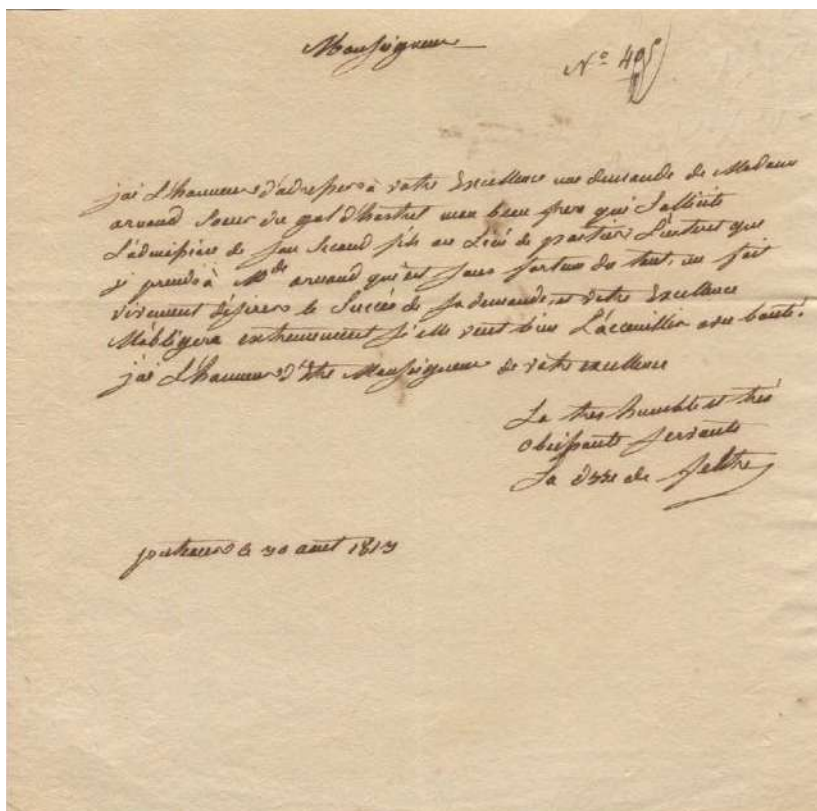 Monseigneur
N° 495
j'ai L'honneur d'adresser à votre Excellence une demande de Madame
arnaud Soeur du gal d'hastrel mon beau frere qui Sollicite
L'admission de son Second fils au Liceé de poitiers L'interet que
je prends à Mde arnaud qui est sans fortune du tout, me fait
vivement désirer le Succés de sa demande, et votre Excellence
M'obligera extremement si elle veut bien L'accueillir avec bonté.
j'ai L'honneur d'être Monseigneur de votre excellence
La tres humble et trés
obeissante servante
La dsse de feltre
le 30 aout 1813